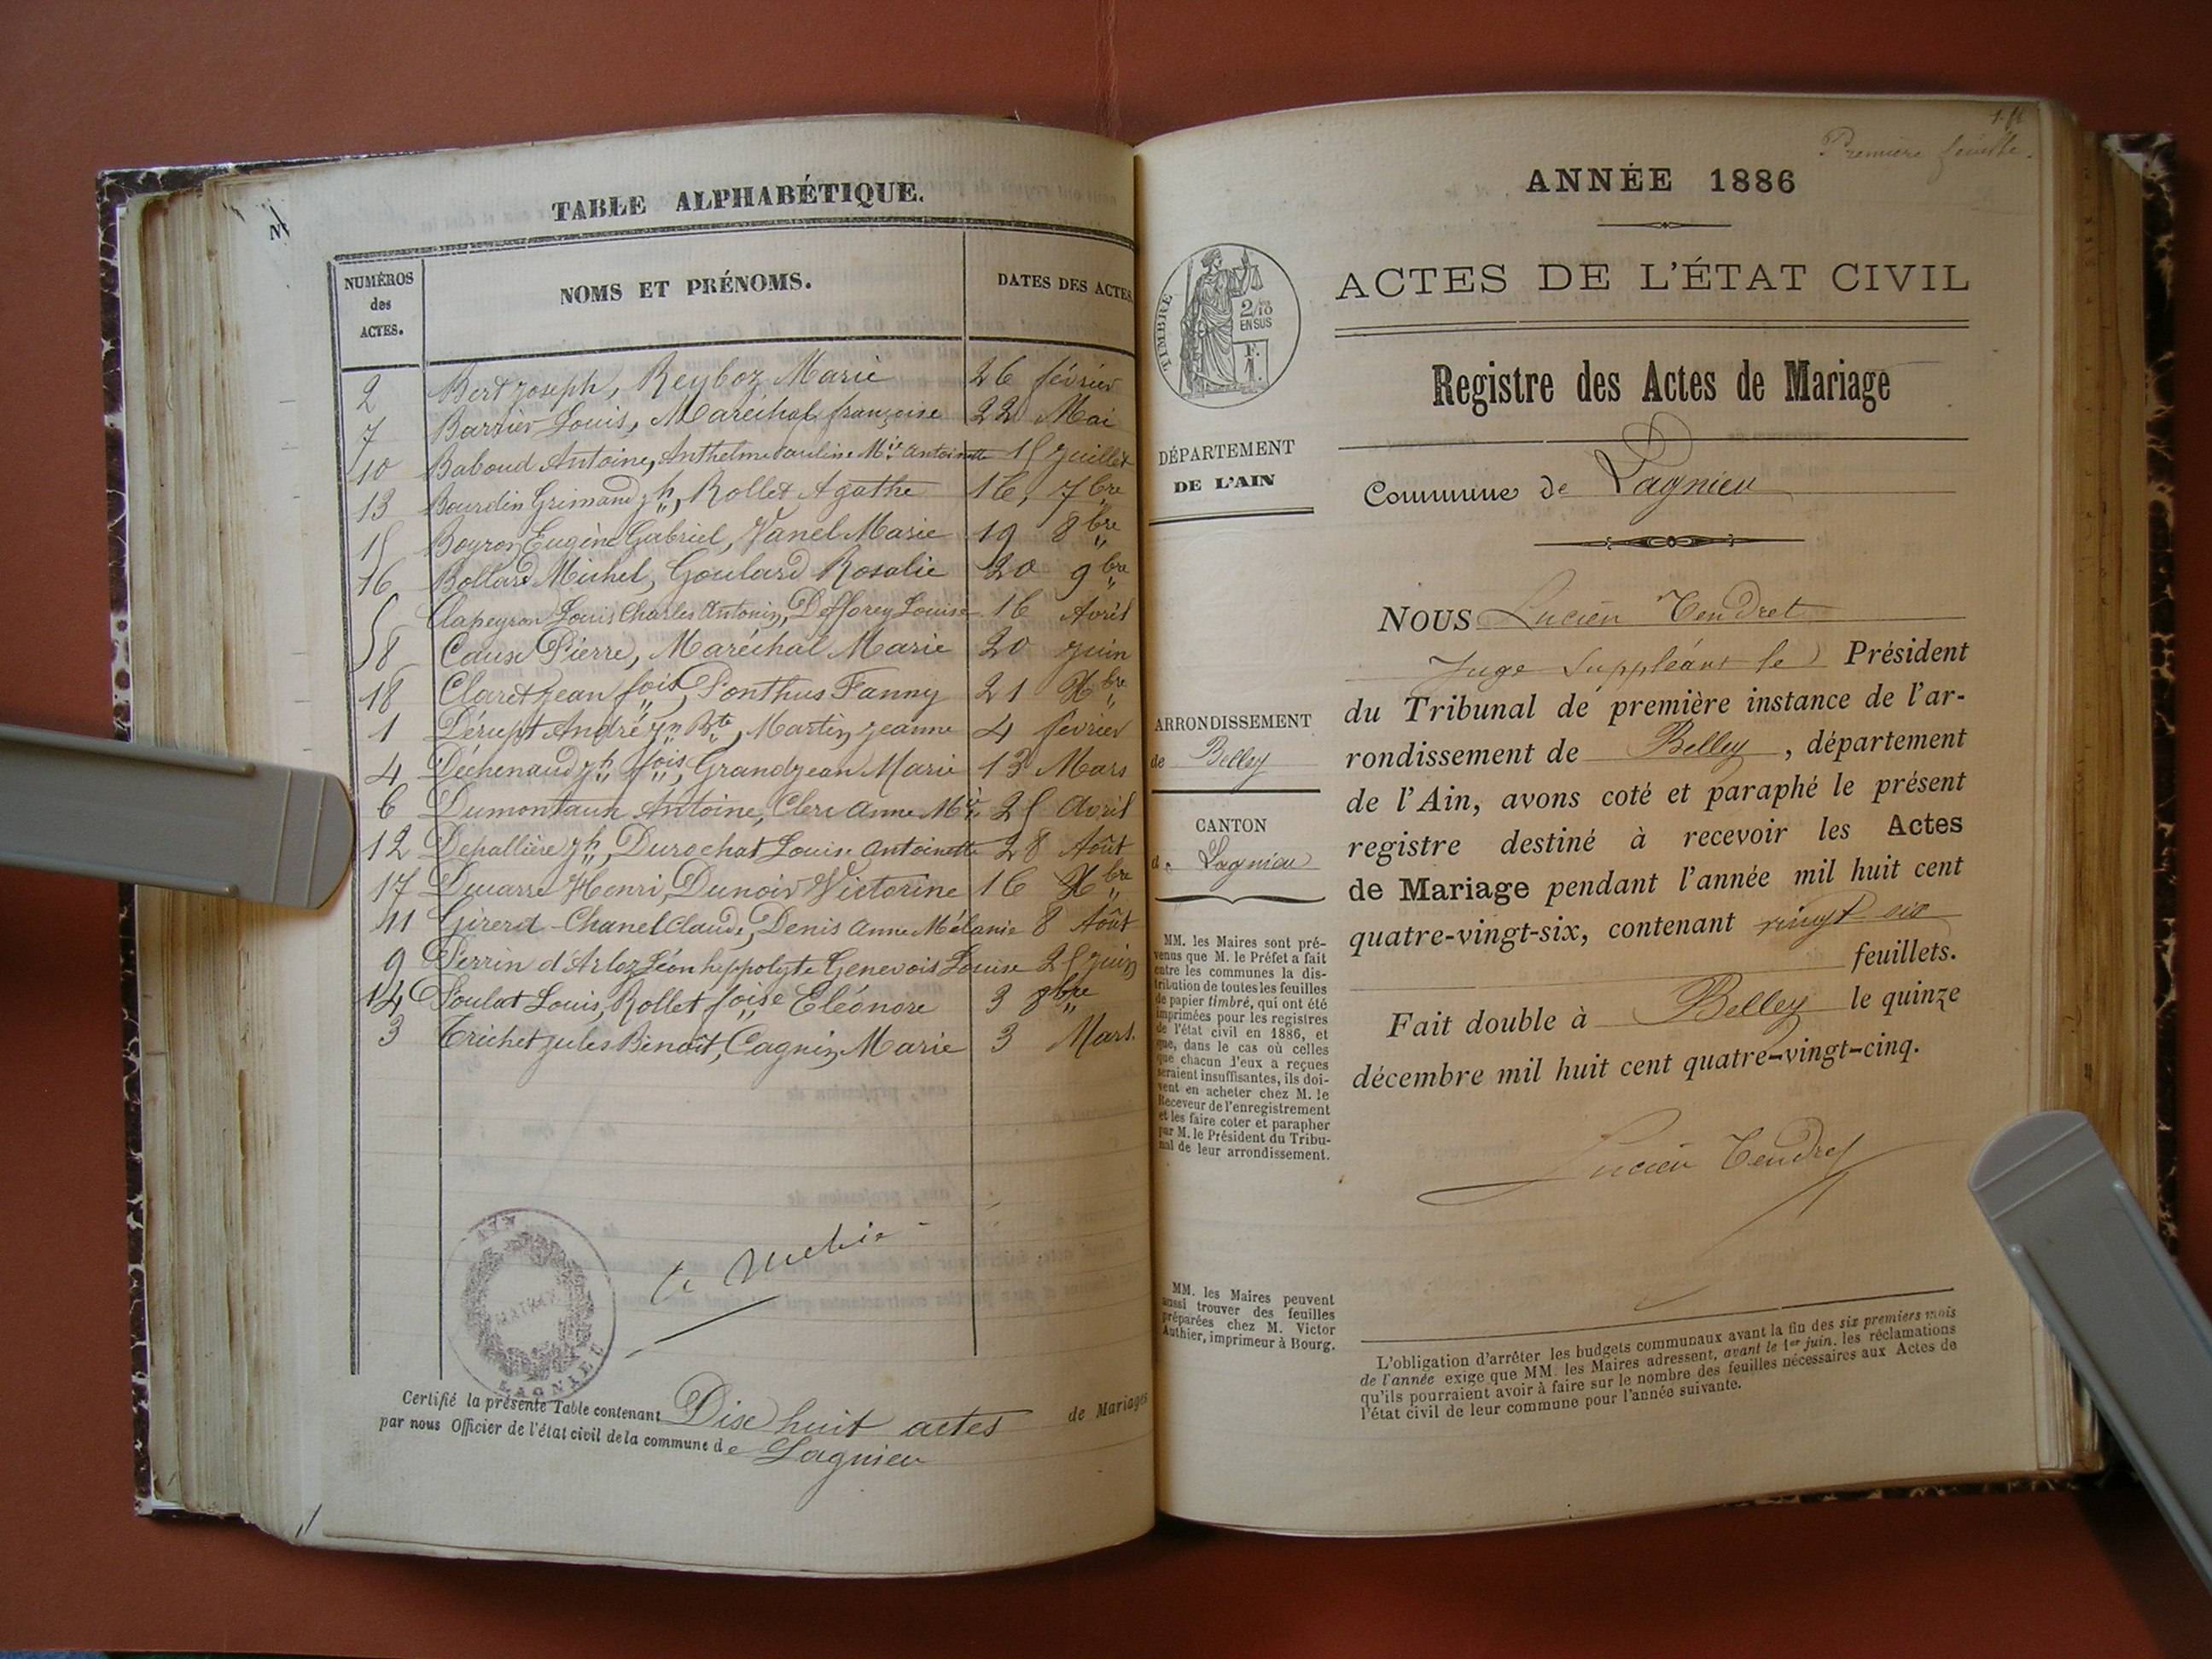 TABLE ALPHABÉTIQUE.
NUMÉROS des ACTES. NOMS ET PRÉNOMS. DATES DES ACTES
2 Bert Joseph, Reyboz Marie 26 février
7 Barrier Louis, Maréchal françoise 22 Mai
10 Baboud Antoine, Anthelme Pauline Mie Antoinette 15 Juillet
13 Bourdin Grimaud Jh, Rollet Agathe 16, 7bre
15 Boyron Eugène Gabriel, Vanel Marie 19 8bre
16 Bollard Michel, Goulard Rosalie 20 9bre
5 Clapeyron Louis Charles Antonin, Defforey Louise 16 Avril
8 Causé Pierre, Maréchal Marie 20 Juin
18 Claret Jean fois, Ponthus Fanny 21 Xbre
1 Dérupt André Jn Bte, Martin Jeanne 4 février
4 Déchenaud Jh fois, Grandjean Marie 13 Mars
6 Dumontaux Antoine, Clerc Anne Mie 25 Avril
12 Depallière Jh, Durochat Louise Antoinette 28 Août
17 Ducarre Henri, Dunoir Victorine 16 Xbre
11 Girerd-Chanel Claude, Denis Anne Mélanie 8 Août
9 Perrin d'Arloz Léon hippolyte Genevois Louise 25 Juin
14 Poulat Louis, Rollet foise Eléonore 3 8bre
3 Trichet Jules Benoît, Cagnin Marie 3 Mars.
AIN
MAIRIE
LAGNIEU
Certifié la présente Table contenant Dix huit actes de Mariages
par nous Officier de l'état civil de la commune de Lagnieu
Première feuille.
ANNÉE 1886
TIMBRE
2/10
EN SUS
ACTES DE L'ÉTAT CIVIL
Registre des Actes de Mariage
DÉPARTEMENT
DE L'AIN
Commune de Lagnieu
ARRONDISSEMENT
de Belley
CANTON
de Lagnieu
MM. les Maires sont pré-
venus que M. le Préfet a fait
entre les communes la dis-
tribution de toutes les feuilles
de papier timbré, qui ont été
imprimées pour les registres
de l'état civil en 1886, et
que, dans le cas où celles
que chacun d'eux a reçues
seraient insuffisantes, ils doi-
vent en acheter chez M. le
Receveur de l'enregistrement
et les faire coter et parapher
par M. le Président du Tribu-
nal de leur arrondissement.
MM. les Maires peuvent
aussi trouver des feuilles
préparées chez M. Victor
Authier, imprimeur à Bourg.
NOUS Lucien Tendret
Juge Suppléant le Président
du Tribunal de première instance de l'ar-
rondissement de Belley, département
de l'Ain, avons coté et paraphé le présent
registre destiné à recevoir les Actes
de Mariage pendant l'année mil huit cent
quatre-vingt-six, contenant vingt six
feuillets.
Fait double à Belley le quinze
décembre mil huit cent quatre-vingt-cinq.
Lucien Tendret
L'obligation d'arrêter les budgets communaux avant la fin des six premiers mois
de l'année exige que MM. les Maires adressent, avant le 1er juin, les réclamations
qu'ils pourraient avoir à faire sur le nombre des feuilles nécessaires aux Actes de
l'état civil de leur commune pour l'année suivante.